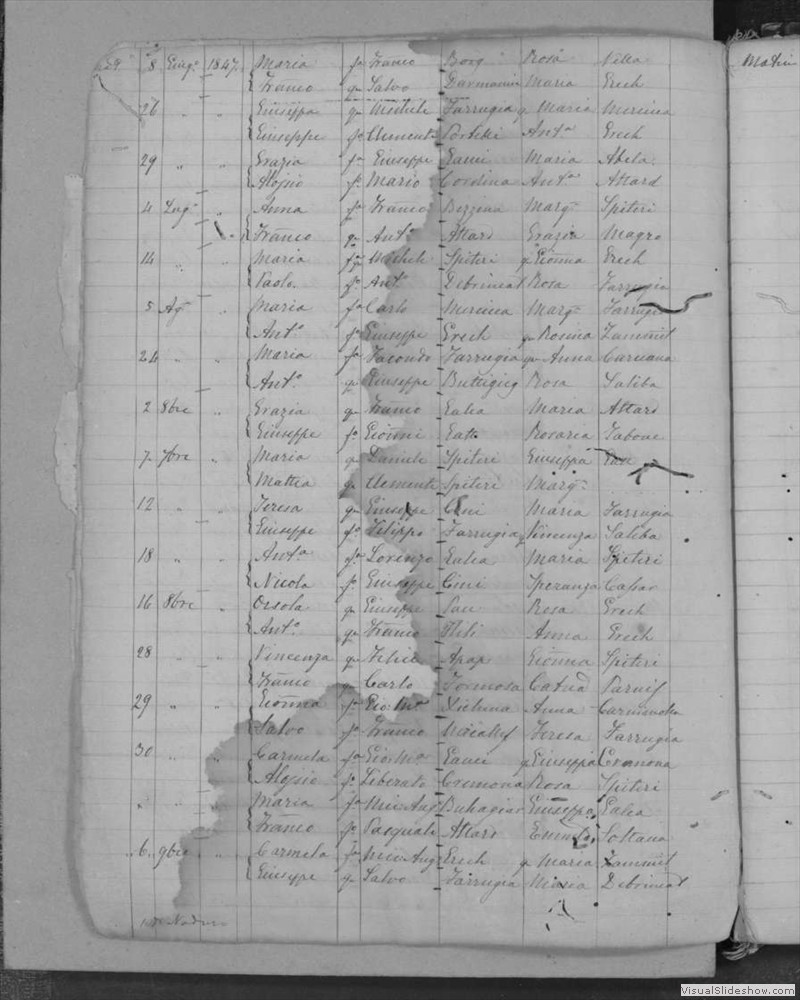 29 8 Giug.o 1847 Maria fa Franco Borg Rosa Vella
Franco qm Salvo Darmanin Maria Grech
26 Giuseppa qm Michele Farrugia qm Maria Mercieca
Giuseppe qm Clemente Portelli Anta Grech
29 " " Grazia fa Giuseppe Gauci Maria Abela
Aloisio fo Mario Cordina Anta Attard
4 Lug.o " Anna fa Franco Bezzina Marga Spiteri
Franco qm Anto Attard Grazia Magro
14 " " Maria fa Michele Spiteri Gionna Grech
Paolo fo Anto Debrincat Rosa Farrugia
5 Ag.o " Maria fa Carlo Mercieca Marga Farrugia
Anto fo Giuseppe Grech qm Rosina Zammit
24 " " Maria fa Farrugia qm Anna Caruana
Anto qm Giuseppe Buttigieg Rosa Saliba
2 8bre " Grazia qm Franco Galea Maria Attard
Giuseppe fo Gionni Gatt Rosaria Tabone
7 7bre " Maria qm Daniele Spiteri Giuseppa
Mattea qm Clemente Spiteri Marga
12 " " Teresa qm Giuseppe Cini Maria Farrugia
Giuseppe fo Filippo Farrugia Vincenza Saliba
18 " " Anta fa Lorenzo Galea Maria Spiteri
Nicola fo Giuseppe Cini Speranza Cassar
16 8bre " Orsola qm Giuseppe Pau Rosa Grech
Anto qm Franco Anna Grech
28 " " Vincenza qm Felice Apap Gionna Spiteri
Franco qm Carlo Formosa Catna Parnis
29 " " Gionna fa Gio Ma Anna
Salvo fo Franco Teresa Farrugia
30 " " Carmela fa Gio Ma Gauci Giuseppa Cremona
Aloisio fo Liberato Cremona Rosa Spiteri
" " " Maria fa Buhagiar Giuseppa Galea
Franco fo Pasquale Attard Soltana
6 9bre " Carmela fa Grech qm Maria Zammit
Giuseppe qm Salvo Farrugia Maria Debrincat
VisualSlideshow.com